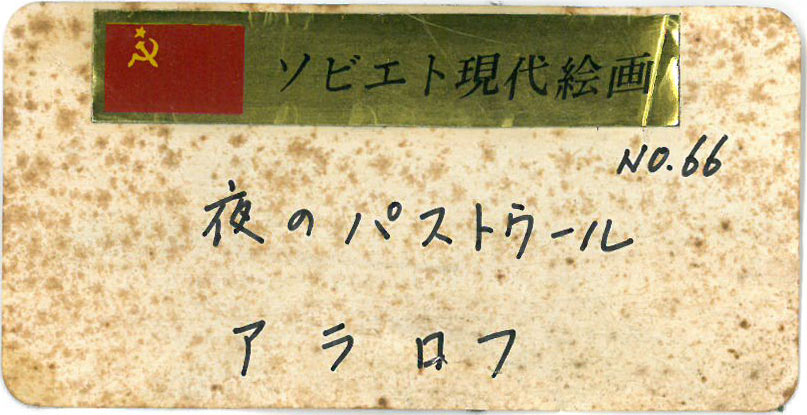 ソビエト現代絵画
NO.66
夜のパストウール
アラロフ